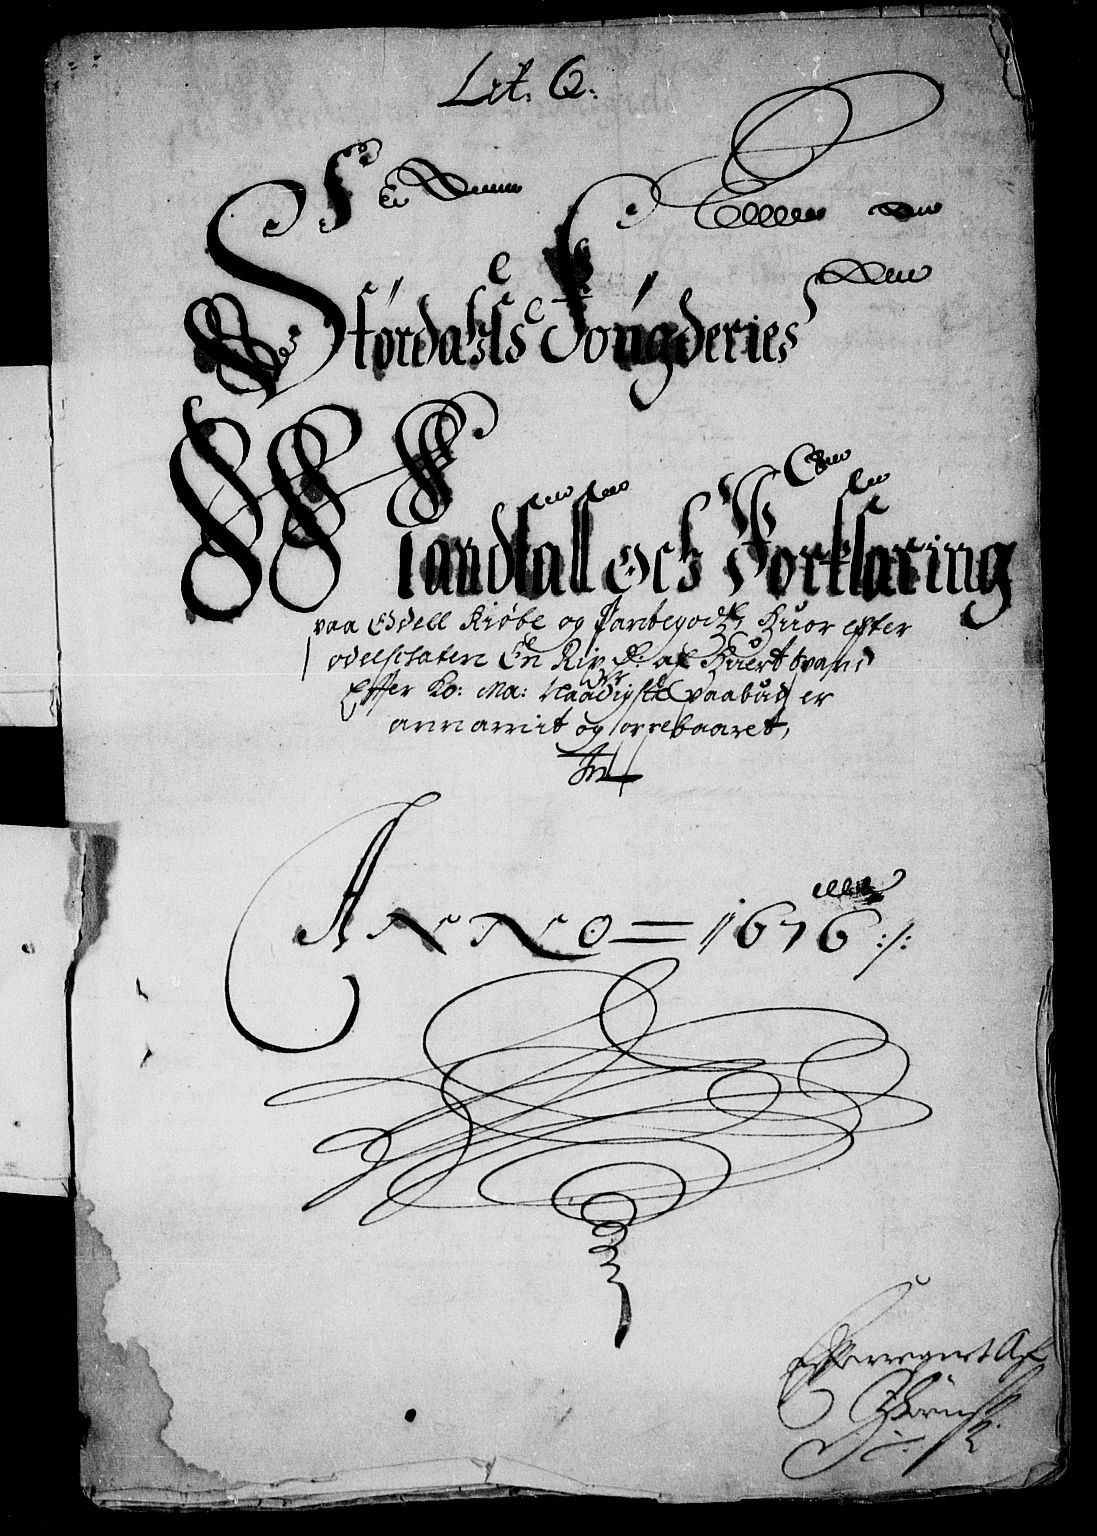 Lit. Q.
Størdalls Fougderies
Mandtall och Forklaring
paa Odell Kiøbe og Pantegodtz, Huor efter
odelschaten En Rix d: af Huert spand
Efter Ko: Ma: Naadigste paabud er
annamit og oppebaaret,
Anno = 1676 :/: